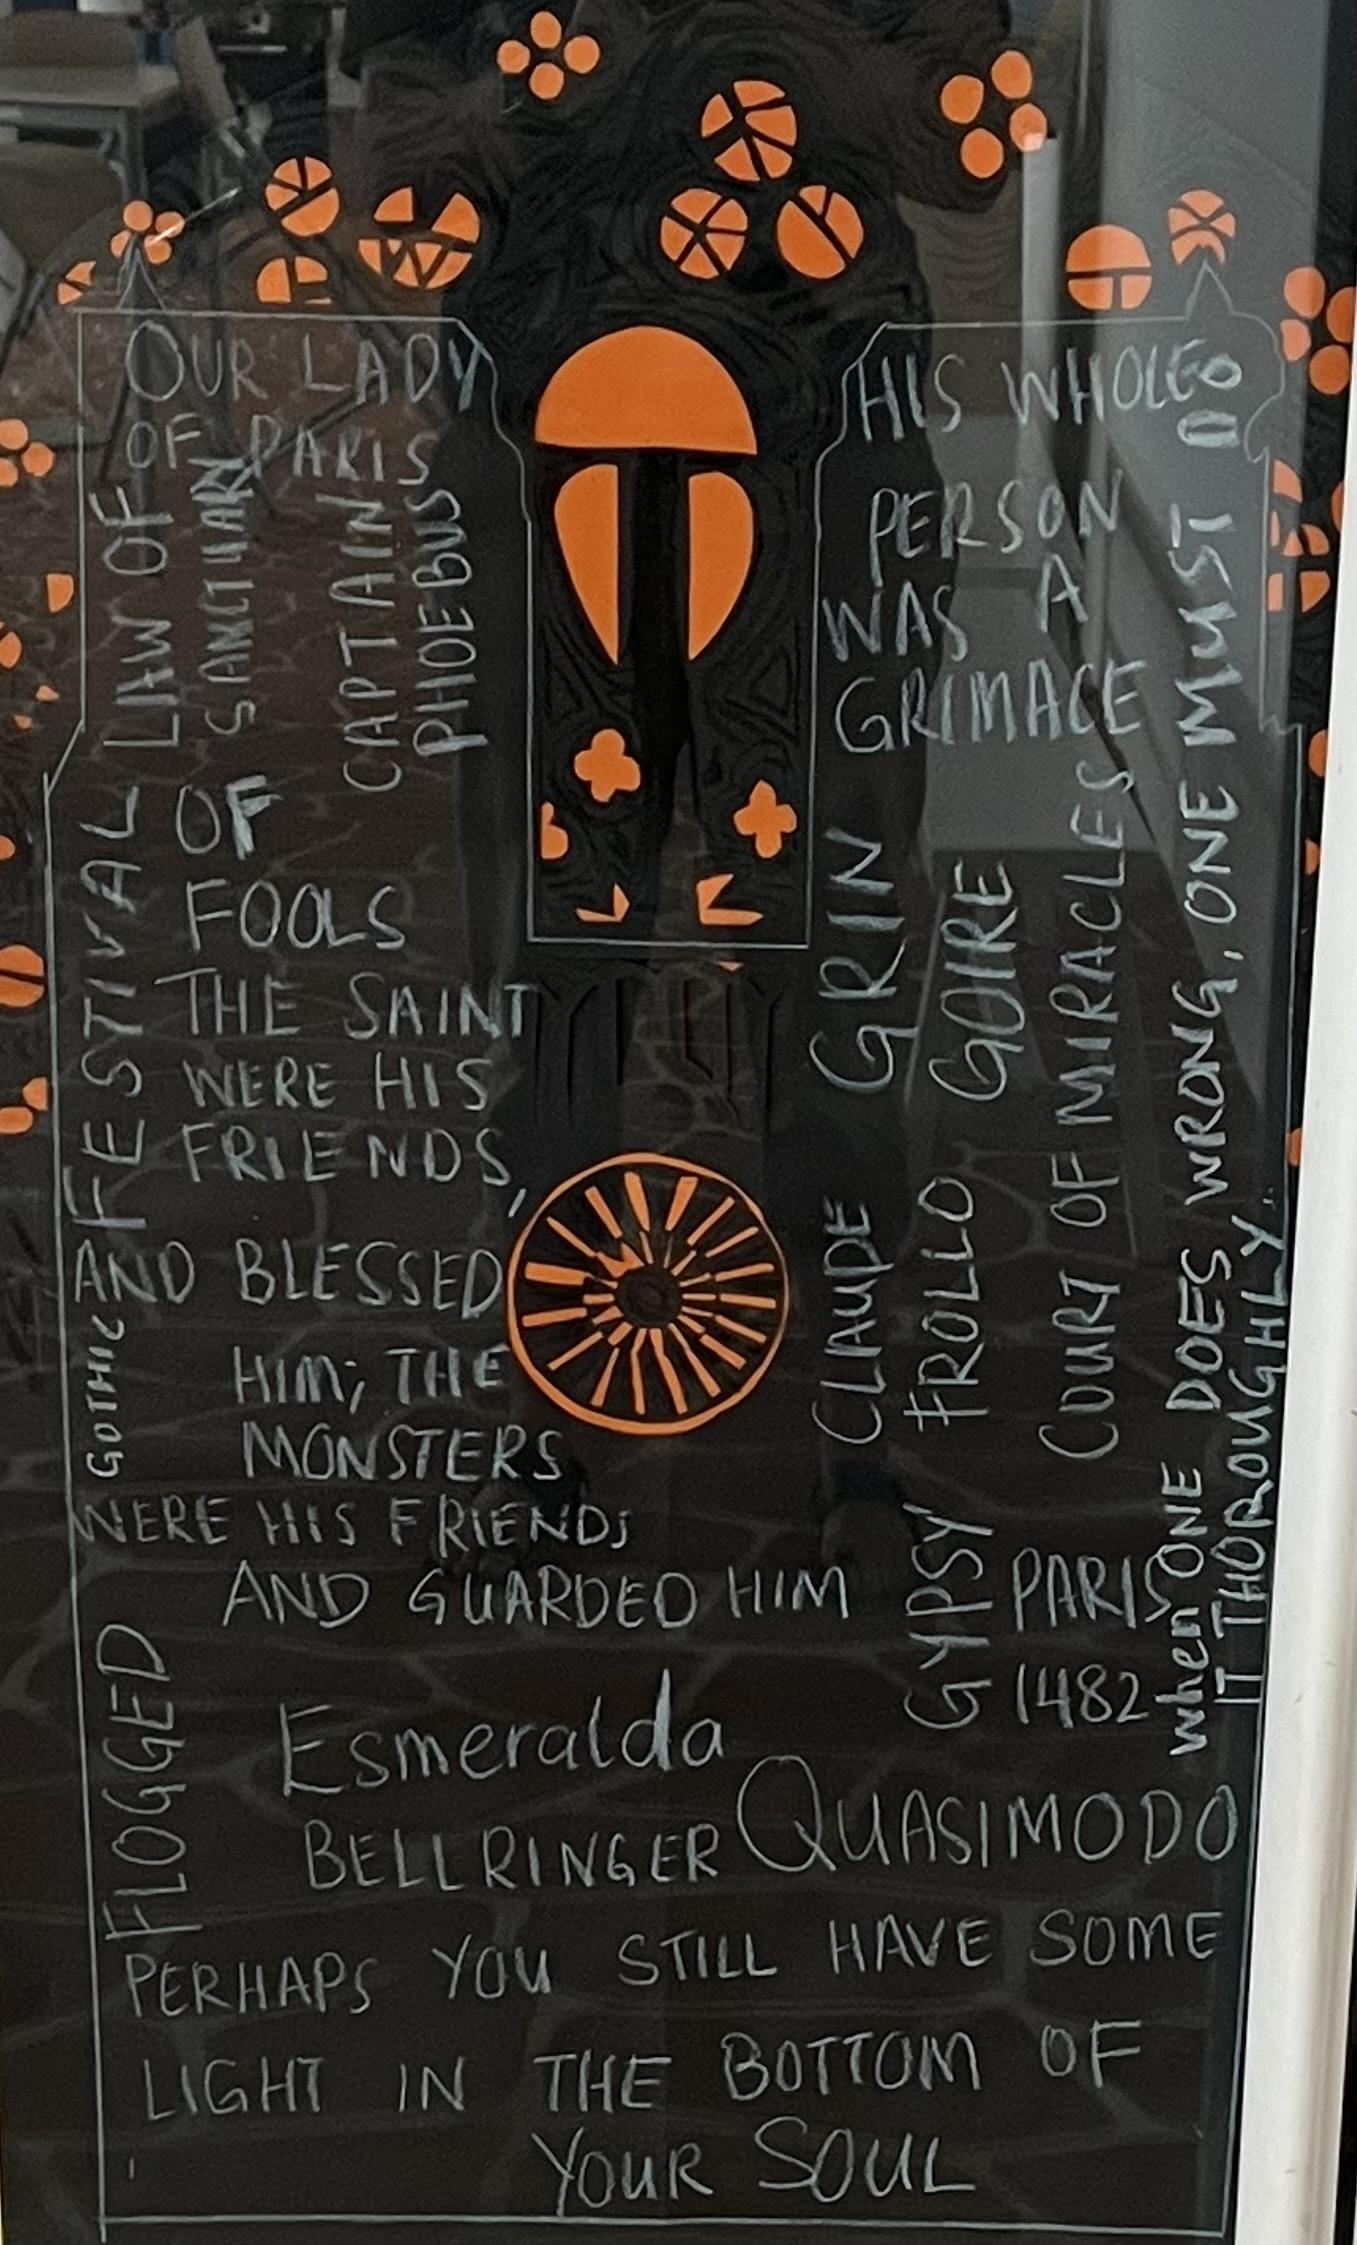 OUR LADY
OF PARIS
LAW OF
SANCTUARY
CAPTAIN
PHOEBUS
FESTIVAL
OF
FOOLS
THE SAINT
WERE HIS
FRIENDS,
AND BLESSED
HIM; THE
MONSTERS
WERE HIS FRIENDS
AND GUARDED HIM
GOTHIC
FLOGGED
HIS WHOLE
PERSON
WAS A
GRIMACE
GRIN
GOIRE
CLAUDE
FROLLO
COURT OF MIRACLES
when ONE DOES WRONG, ONE MUST DO
IT THOROUGHLY.
GYPSY
PARIS
1482
Esmeralda
BELLRINGER QUASIMODO
PERHAPS YOU STILL HAVE SOME
LIGHT IN THE BOTTOM OF
YOUR SOUL